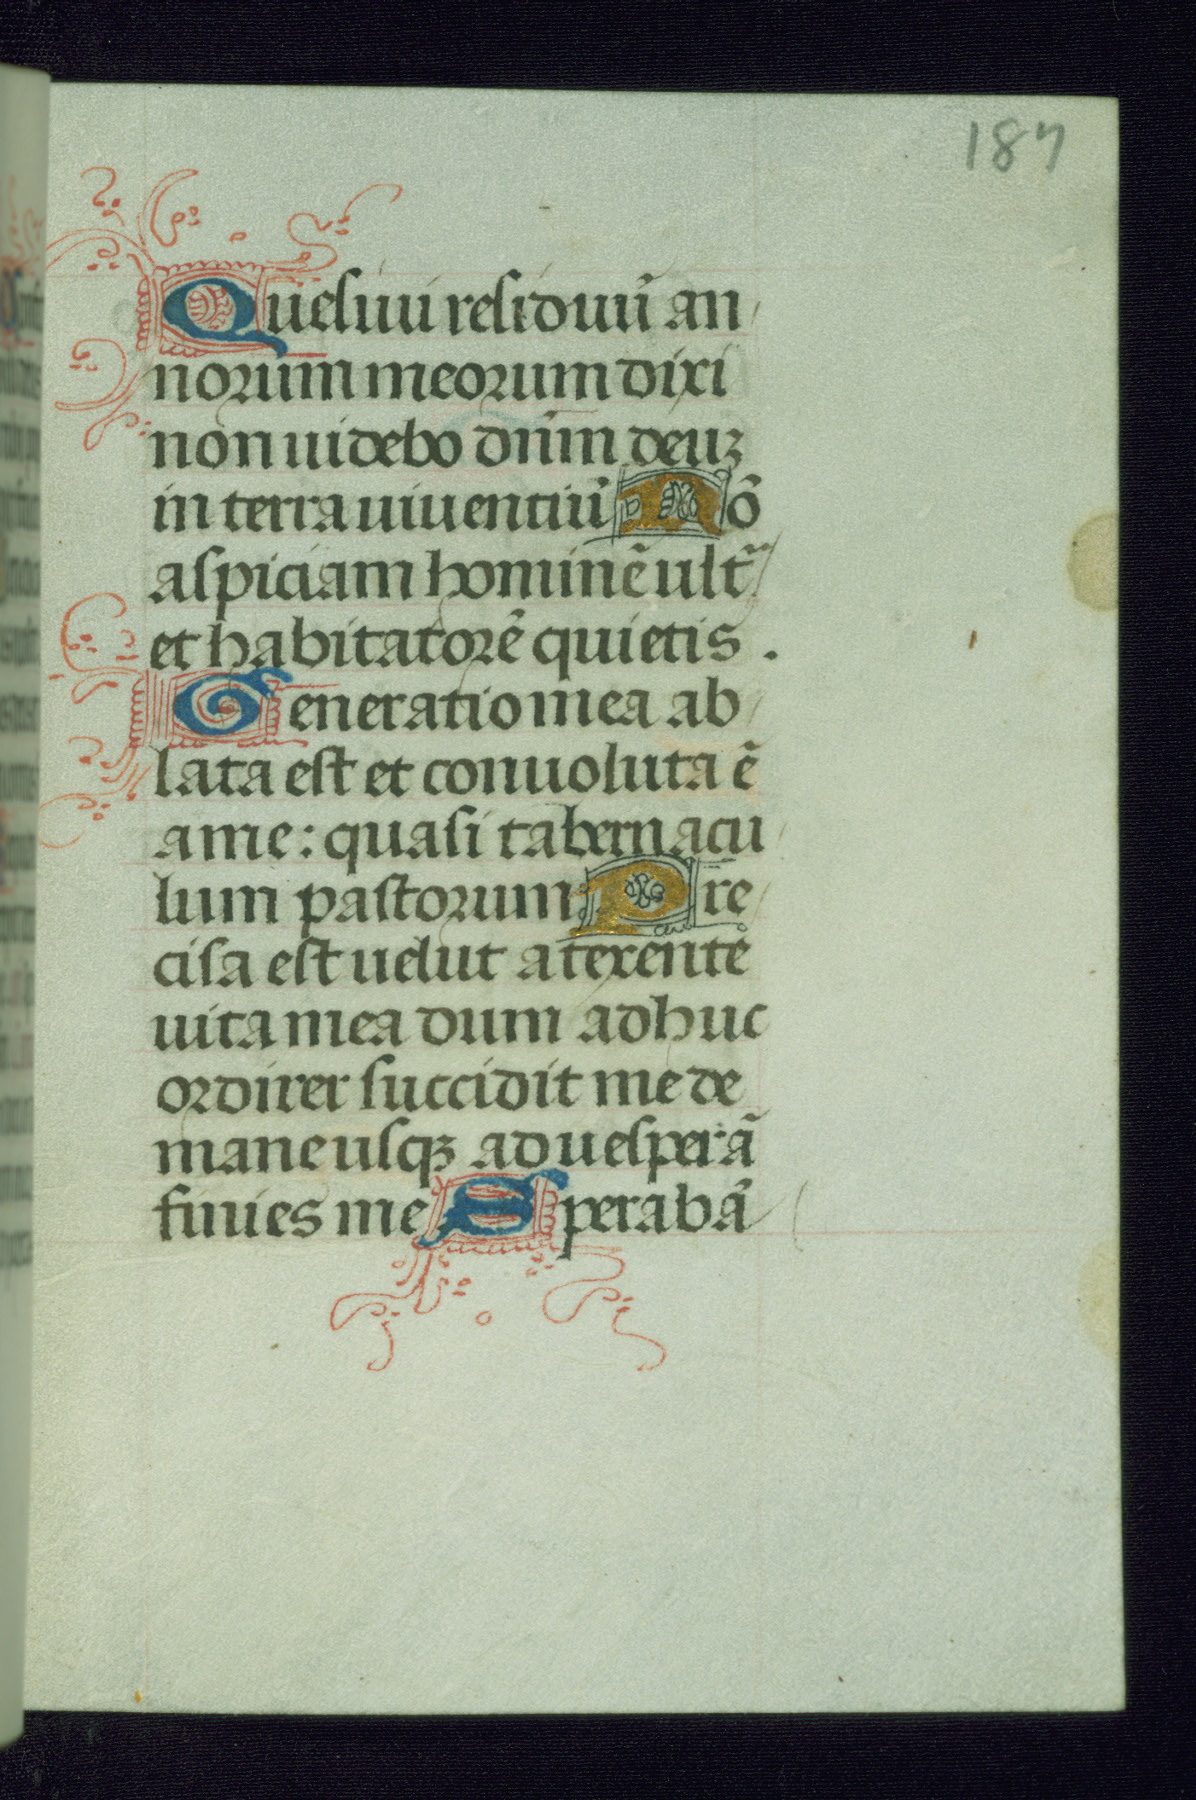 187
Quesiui residuū an
norum meorum dixi
non uidebo dn̄m deuꝫ
in terra uiuentiū Nō
aspiciam hominē ult̃
et habitatorē quietis .
Generatio mea ab
lata est et conuoluta ē
a me : quasi tabernacu
lum pastorum Pre
cisa est uelut a texente
uita mea dum adhuc
ordirer succidit me de
mane usqꝫ ad uesperā
finies me Sperabā